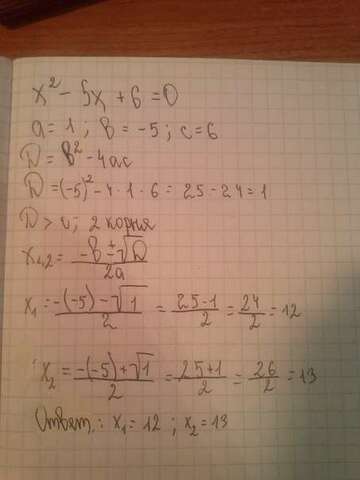 x² - 5x + 6 = 0
a = 1 ; b = -5 ; c = 6
D = b² - 4ac
D = (-5)² - 4 · 1 · 6 = 25 - 24 = 1
D > 0; 2 корня
x₁,₂ = (-b ± √D) / 2a
x₁ = (-(-5) - √1) / 2 = (25 - 1) / 2 = 24 / 2 = 12
x₂ = (-(-5) + √1) / 2 = (25 + 1) / 2 = 26 / 2 = 13
Ответ: x₁ = 12 ; x₂ = 13